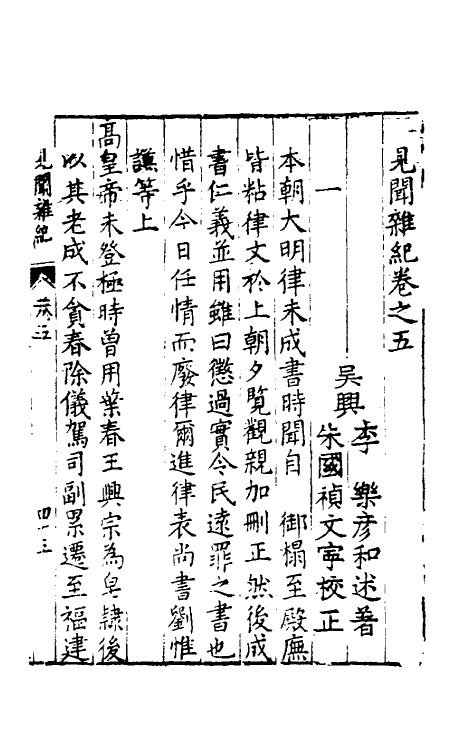 見聞雜紀卷之五
吳興李 樂彥和述著
朱國禎文寧校正
一
本朝大明律未成書時聞自 御榻至殿廡
皆粘律文於上朝夕覽觀親加刪正然後成
書仁義並用雖曰懲過實令民遠罪之書也
惜乎今日任情而廢律爾進律表尚書劉惟
謙等上
高皇帝未登極時曾用葉春王興宗為皂隸後
以其老成不貪春除儀鸞司副累遷至福建
見聞雜紀 卷五 四十三